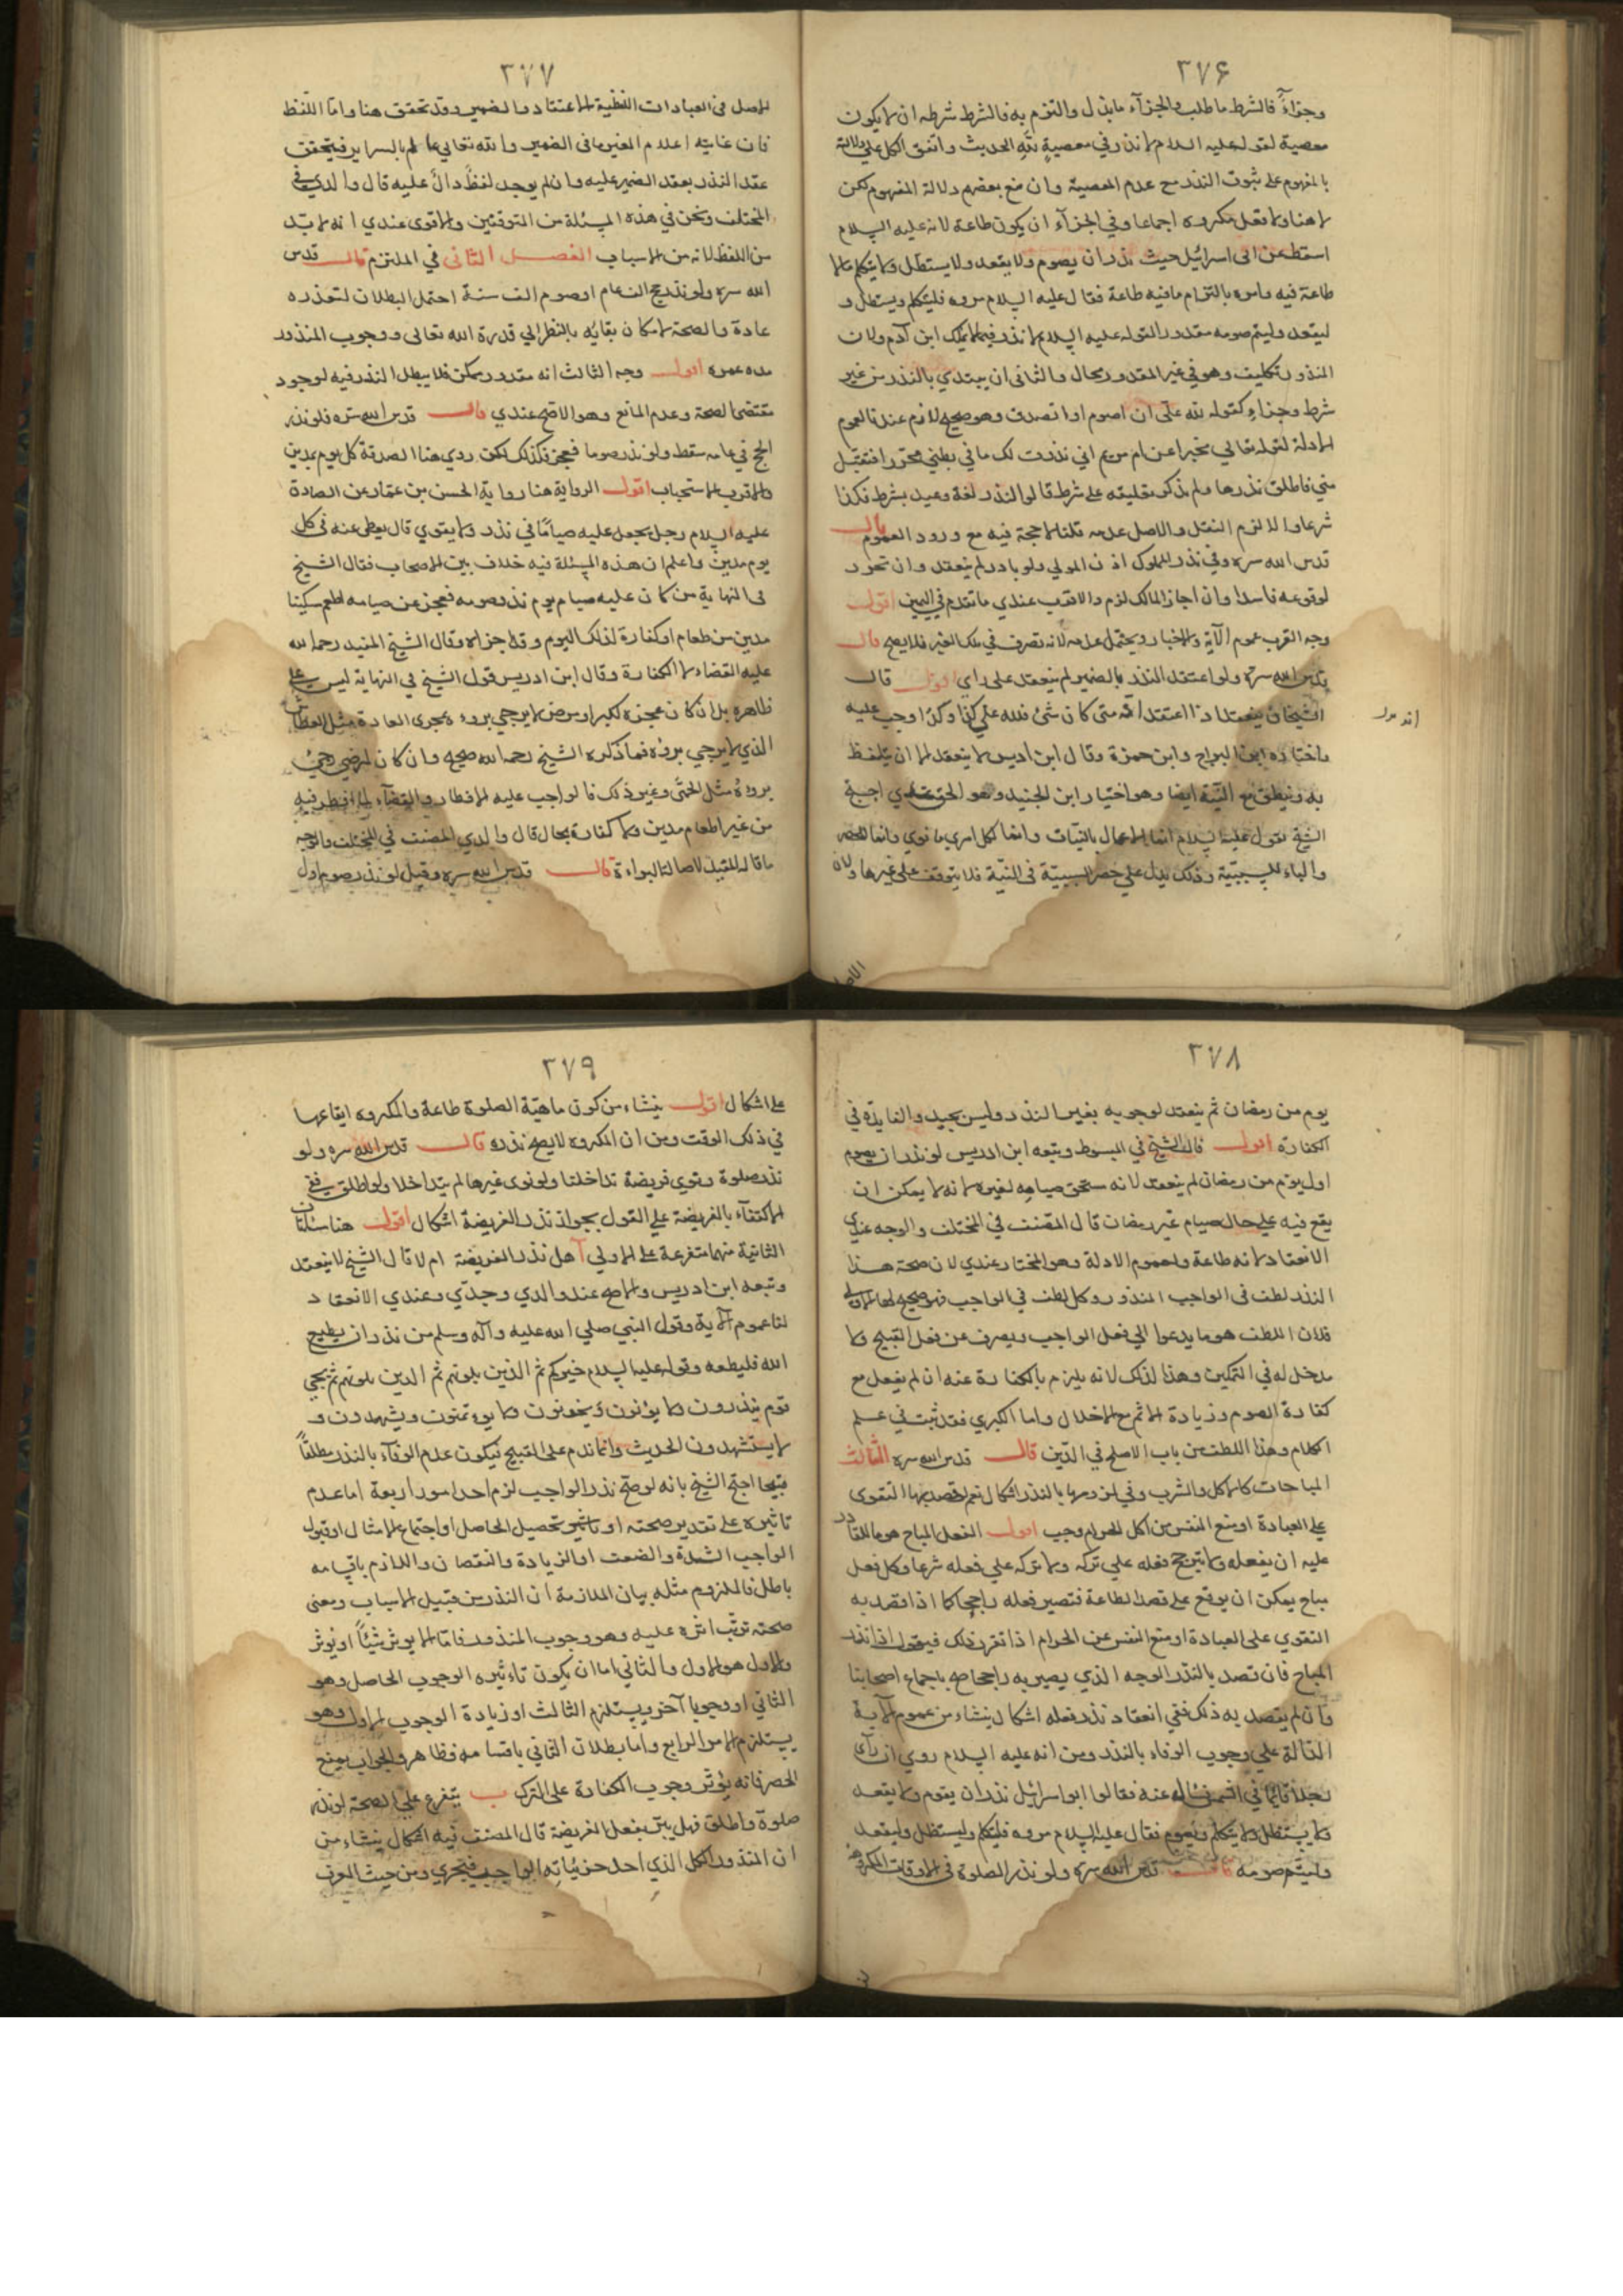 ٢٧۶
وجزاءً فالشرط ما طلب والجزآء ما بذل والتزم به فالشرط شرطه ان لا يكون
معصية لقوله عليه السلام لا نذر في معصيةٍ للّهِ الحديث واتفق الكل على دلالة
بالمفهوم على ثبوت النذر مع عدم المعصية وان منع بعضهم دلالة المفهوم لكن
لا هنا ولا فعل مكروه اجماعا وفي الجزآء ان يكون طاعة لانه عليه السلام
اسقط عن ابى اسرائيل حيث نذر ان يصوم ولا يقعد ولا يستظل ولا يتكلم مالا
طاعة فيه وامره بالتزام ما فيه طاعة فقال عليه السلام مروه فليتكلم ويستظل و
ليقعد وليتم صومه مقدورا لقوله عليه السلام لا نذر فيما لا يملك ابن آدم ولان
المنذور تكليف وهو في غير المقدور محال والثانى ان يبتدي بالنذر من غير
شرط وجزاءٍ كقوله لله علّى ان اصوم او اتصدق وهو صحيح لازم عندنا لعموم
الادلة لقوله تعالي مخبرا عن ام مريم اني نذرت لك ما في بطني محررا فتقبّل
مني فاطلق نذرها ولم يذكر تعليقه على شرط قالوا النذر لغة وعد بشرط فكذا
شرعا والا لزم النقل والاصل عدمه قلنا لا حجة فيه مع ورود العموم قال
قدس الله سره وفي نذر المملوك اذن المولي ولو بادر لم ينعقد وان تحرر
لوقوعه فاسدا وان اجاز المالك لزم والاقرب عندي ما تقدم في اليمين اقول
وجه القرب عموم الآية والاخبار ويحتمل عدمه لانه تصرف في ملك الغير فلا يصح قال
قدس الله سره ولو اعتقد النذر بالضمير لم ينعقد على راي اقول قال
الشيخان ينعقد اذا اعتقد انه متى كان شئ فلله علي كذا وكذا وجب عليه
واختاره ابن البراج وابن حمزة وقال ابن ادريس لا ينعقد الا ان يتلفظ
به وينطق مع النيّة ايضا وهو اختيار ابن الجنيد وهو الحق عندي احتج
الشيخ بقوله عليه السلام انما الاعمال بالنيّات وانما لكل امرئ ما نوي وانما للحصر
والباء للسببيّة وذلك يدل علي حصر السببيّة فى النيّة فلا يتوقف على غيرها ولان
٢٧٧
الاصل فى العبادات اللفظية الاعتقاد بالضمير وقد تحقق هنا واما اللّفظ
فان غايته اعلام الغير ما فى الضمير والله تعالي عالم بالسراير فيتحقق
عقد النذر بعقد الضمير عليه وان لم يوجد لفظٌ دالٌ عليه قال والدي في
المختلف ونحن في هذه المسئلة من المتوقفين والاقوى عندي انه لا بدّ
من اللفظ لانه من الاسباب الفصل الثانى في الملتزم قال قدس
الله سره ولو نذر حج الف عام او صوم الف سنة احتمل البطلان لتعذره
عادة والصحة لامكان بقائه بالنظر الي قدرة الله تعالى ووجوب المنذور
مدة عمره اقول وجه الثالث انه مقدور ممكن فلا يبطل النذر فيه لوجود
مقتضى الصحة وعدم المانع وهو الاصح عندي قال قدس الله سره فلو نذر
الحج في عامه سقط ولو نذر صوما فعجز فكذلك لكن روي هنا الصدقة كل يوم بمدين
والاقرب الاستحباب اقول الرواية هنا رواية الحسن بن عمّار عن الصادق
عليه السلام رجل يجعل عليه صياما في نذر ولا يقوي قال يعطى عنه في كل
يوم مدين واعلم ان هذه المسئلة فيه خلاف بين الاصحاب فقال الشيخ
فى النهاية من كان عليه صيام يوم نذر صومه فعجز عن صيامه اطعم مسكينا
مدين من طعام او كفارة لذلك اليوم وقد اجزاه وقال الشيخ المفيد رحمه الله
عليه القضاء لا الكفارة وقال ابن ادريس قول الشيخ في النهاية ليس على
ظاهره بل ان كان عجزه لكبر او مرض لا يرجي برؤه مجرى العادة مثل العطاش
الذي لا يرجي برؤه فما ذكره الشيخ رحمه الله صحيح وان كان لمرض يرجي
برؤه مثل الحمّى وغير ذلك فالواجب عليه الافطار والقضاء لما افطر فيه
من غير اطعام مدين ولا كفارة بحال قال والدي المصنف في المختلف والوجه
ما قاله المفيد لاصالة البراءة قال قدس الله سره وقيل لو نذر صوم اول
٢٧٨
يوم من رمضان ثم ينعقد لوجوبه بغير النذر وليس بجيد والفايدة في
الكفارة اقول قال الشيخ في المبسوط وتبعه ابن ادريس لو نذر ان يصوم
اول يوم من رمضان لم ينعقد لانه مستحق صيامه لغيره لانه لا يمكن ان
يقع فيه على حال صيام غير رمضان قال المصنف في المختلف والوجه عندي
الانعقاد لانه طاعة ولعموم الادلة وهو المختار عندي لان صحة هذا
النذر لطف فى الواجب المنذور وكل لطف في الواجب فهو صحيح اما الاولي
فلان اللطف هو ما يدعوا الي فعل الواجب ويصرف عن فعل القبيح ولا
مدخل له في التمكين وهذا لذلك لانه يلزم بالكفارة عنه ان لم يفعل مع
كفارة الصوم وزيادة الاثم مع الاخلال واما الكبري فقد ثبت في علم
الكلام وهذا اللطف من باب الاصلح في الدّين قال قدس الله سره الثالث
المباحات كالاكل والشرب وفي لزومها بالنذر اشكال نعم لو قصد بها التقوى
على العبادة او منع النفس من اكل الحرام وجب اقول الفعل المباح هو ما للقادر
عليه ان يفعله ولا يترجح فعله علي تركه ولا تركه علي فعله شرعا وكل فعل
مباح يمكن ان يوقع على قصد الطاعة فتصير فعله راجحا كما اذا قصد به
التقوي على العبادة او منع النفس عن الحرام اذا تقرر ذلك فيقول اذا نذر
المباح فان قصد بالنذر الوجه الذي يصير به راجحا صح باجماع اصحابنا
وان لم يقصد به ذلك ففي انعقاد نذر فعله اشكال ينشاء من عموم الآية
الدّالة علي وجوب الوفاء بالنذر ومن انه عليه السلام روي انه رأى
رجلا قائما في الشمس فسال عنه فقالوا ابو اسرائيل نذر ان يقوم ولا يقعد
ولا يستظل ولا يتكلم ويصوم فقال عليه السلام مروه فليتكلم وليستظل وليقعد
وليتم صومه قال قدس الله سره ولو نذر الصلوة فى الاوقات المكروهة
٢٧٩
على اشكال اقول ينشاء من كون ماهيّة الصلوة طاعة والمكروه ايقاعها
في ذلك الوقت ومن ان المكروه لا يصح نذره قال قدس الله سره ولو
نذر صلوة ونوي فريضة تداخلتا ولو نوى غيرها لم يتداخلا ولو اطلق ففي
الاكتفآء بالفريضة علي القول بجواز نذر الفريضة اشكال اقول هنا مسئلتان
الثانية منهما متفرعة على الاولي آ هل نذر الفريضة ام لا قال الشيخ لا ينعقد
وتبعه ابن ادريس والاصح عند والدي وجدّي وعندي الانعقاد
لنا عموم الآية وقول النبي صلي الله عليه وآله وسلم من نذر ان يطيع
الله فليطعه وقوله عليه السلام خيركم ثم الذين يلونهم ثم الذين يلونهم ثم يجئ
قوم ينذرون ولا يوفون ويخونون ولا يؤتمنون ويشهدون و
لا يستشهدون الحديث وانما ندم على القبيح فيكون عدم الوفآء بالنذر مطلقاً
قبيحا احتج الشيخ بانه لو صح نذر الواجب لزم احد امور اربعة اما عدم
تاثيره على تقدير صحته او تاثير تحصيل الحاصل او اجتماع الامثال او قبول
الواجب الشدة والضعف او الزيادة والنقصان واللازم باقسامه
باطل فالملزوم مثله بيان الملازمة ان النذر من قبيل الاسباب ومعنى
صحته ترتّب اثره عليه وهو وجوب المنذور فامّا لا يوثر شيئاً او يوثر
والاول هو الاول والثاني اما ان يكون تاءثيره الوجوب الحاصل وهو
الثاني او وجوبا آخر ويستلزم الثالث او زيادة الوجوب الاول وهو
يستلزم الامر الرابع واما بطلان التالي باقسامه فظاهر والجواب بمنع
الحصر فانه يؤثّر وجوب الكفارة على الترك ب يتفرع علي الصحة لو نذر
صلوة واطلق فهل يبرّ بفعل الفريضة قال المصنف فيه اشكال ينشاء من
ان المنذور الكل الذي احد جزئياته الواجب فيجزي ومن حيث العرف